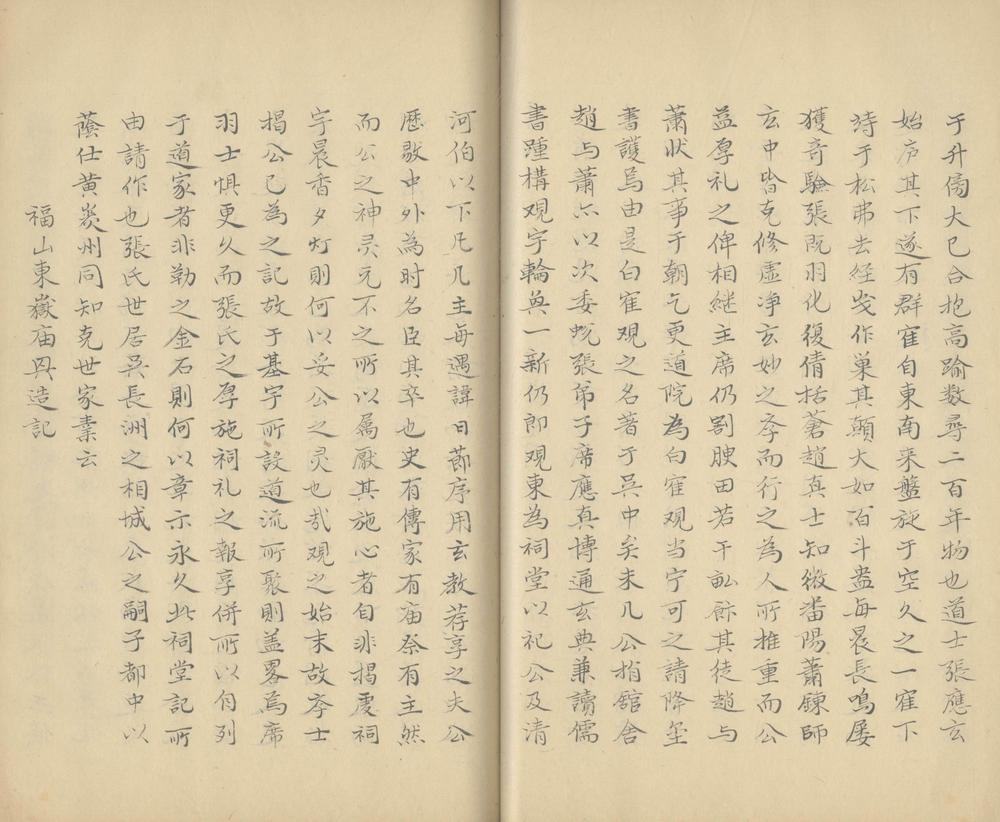 于升僑大已合抱高踰数尋二百年物也道士張應玄
始庐其下遂有群寉自東南来盤旋于空久之一寉下
峙于松弗去经宊作巢其顛大如百斗盎每晨長鳴屡
獲奇驗張既羽化復倩括蒼趙真士知微番陽蕭鍊師
玄中皆克修虚净玄妙之孝而行之為人所推重而公
益厚礼之俾相継主席仍割腴田若干畝餘其徒趙与
蕭状其事于朝乞更道院為白寉观当宁可之請降玺
書護焉由是白寉观之名著于吴中矣未几公捐舘舍
趙与蕭亦以次委蜕張弟子席應真博通玄典兼讀儒
書踵構观宇輪奂一新仍即观東為祠堂以祀公及清
河伯以下凡几主每遇諱日節序用玄教荐享之夫公
歷敭中外為时名臣其卒也史有傳家有庙祭有主然
而公之神灵元不之所以属厭其施心者自非揭虔祠
宇晨香夕灯則何以妥公之灵也哉观之始末故孝士
揭公已為之記故于基宇所設道流所聚則盖畧焉席
羽士惧更久而張氏之厚施祠礼之報享併所以自列
于道家者非勒之金石則何以章示永久此祠堂記所
由請作也張氏世居吴長洲之相城公之嗣子都中以
蔭仕黄岩州同知克世家業云
福山東嶽庙興造記